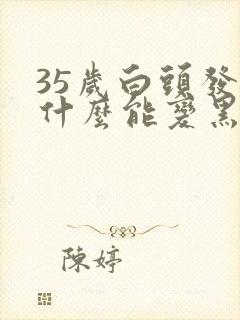 35歲白頭發
什麼能變黑
陳婷